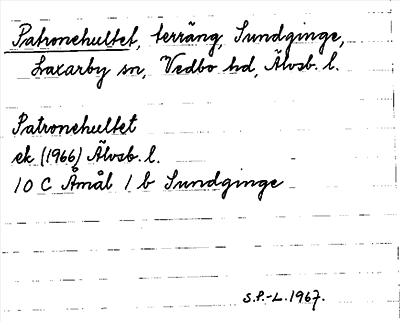 Patronehultet, terräng, Sundginge,
Laxarby sn, Vedbo hd, Älvsb. l.
Patronehultet
ek (1966) Älvsb. l.
10 C Åmål 1 b Sundginge
S.P.-L. 1967.